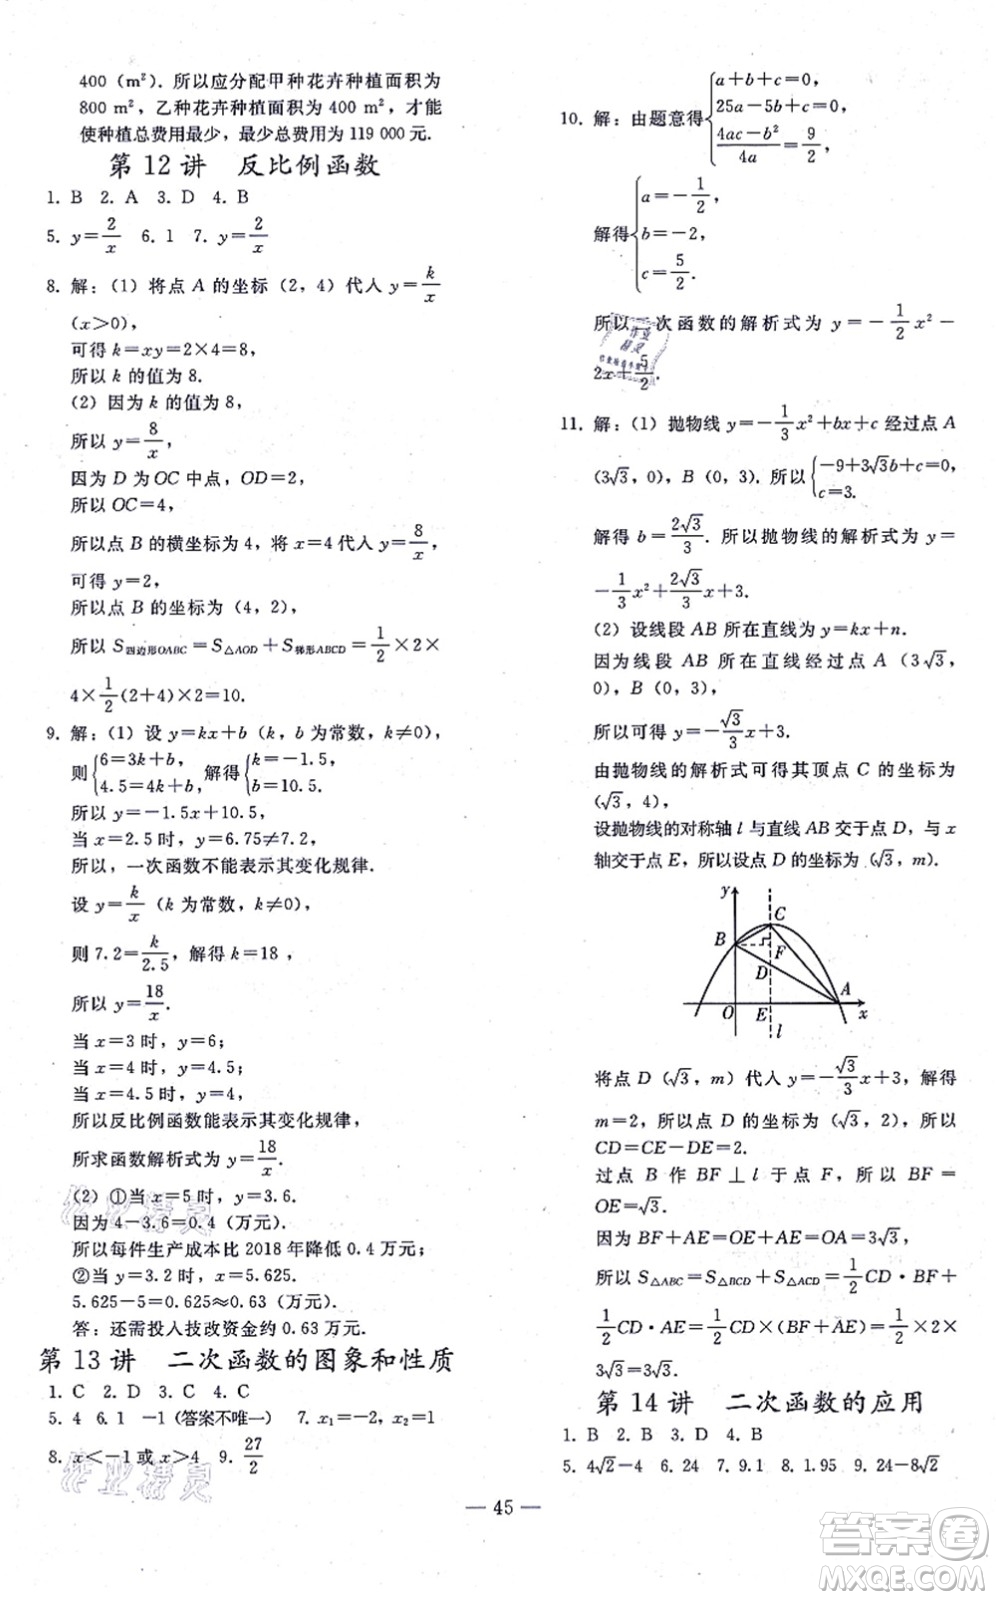 400 (m²). 所以应分配甲种花卉种植面积为
800 m²,乙种花卉种植面积为 400 m²,才能
使种植总费用最少,最少总费用为 119 000 元.
第 12 讲 反比例函数
1. B 2. A 3. D 4. B
5. y=2/x 6. 1 7. y=2/x
8. 解:(1) 将点 A 的坐标 (2, 4) 代人 y=k/x
(x>0),
可得 k=xy=2×4=8,
所以 k 的值为 8.
(2) 因为 k 的值为 8,
所以 y=8/x,
因为 D 为 OC 中点, OD=2,
所以 OC=4,
所以点 B 的横坐标为 4, 将 x=4 代人 y=8/x,
可得 y=2,
所以点 B 的坐标为 (4, 2),
所以 S四边形OABC=S△AOD+S梯形ABCD=1/2×2×
4×1/2(2+4)×2=10.
9. 解:(1) 设 y=kx+b (k, b 为常数, k≠0),
则{6=3k+b, 4.5=4k+b, 解得{k=-1.5, b=10.5.
所以 y=-1.5x+10.5,
当 x=2.5 时, y=6.75≠7.2,
所以,一次函数不能表示其变化规律.
设 y=k/x (k 为常数, k≠0),
则 7.2=k/2.5, 解得 k=18,
所以 y=18/x.
当 x=3 时, y=6;
当 x=4 时, y=4.5;
当 x=4.5 时, y=4,
所以反比例函数能表示其变化规律,
所求函数解析式为 y=18/x.
(2) ①当 x=5 时, y=3.6.
因为 4-3.6=0.4 (万元).
所以每件生产成本比 2018 年降低 0.4 万元;
②当 y=3.2 时, x=5.625.
5.625-5=0.625≈0.63 (万元).
答:还需投人技改资金约 0.63 万元.
第 13 讲 二次函数的图象和性质
1. C 2. D 3. C 4. C
5. 4 6. 1 -1 (答案不唯一) 7. x₁=-2, x₂=1
8. x<-1 或 x>4 9. 27/2
10. 解:由题意得{a+b+c=0, 25a-5b+c=0, (4ac-b²)/4a=9/2,
解得{a=-1/2, b=-2, c=5/2.
所以二次函数的解析式为 y=-1/2x²-
2x+5/2.
11. 解:(1) 抛物线 y=-1/3x²+bx+c 经过点 A
(3√3, 0), B (0, 3). 所以{-9+3√3b+c=0, c=3.
解得 b=2√3/3. 所以抛物线的解析式为 y=
-1/3x²+2√3/3x+3.
(2) 设线段 AB 所在直线为 y=kx+n.
因为线段 AB 所在直线经过点 A (3√3,
0), B (0, 3),
所以可得 y=-√3/3x+3.
由抛物线的解析式可得其顶点 C 的坐标为
(√3, 4),
设抛物线的对称轴 l 与直线 AB 交于点 D, 与 x
轴交于点 E, 所以设点 D 的坐标为 (√3, m).
y
C
B
F
D
A
O
E
x
l
将点 D (√3, m) 代人 y=-√3/3x+3, 解得
m=2, 所以点 D 的坐标为 (√3, 2), 所以
CD=CE-DE=2.
过点 B 作 BF⊥l 于点 F, 所以 BF=
OE=√3.
因为 BF+AE=OE+AE=OA=3√3,
所以 S△ABC=S△BCD+S△ACD=1/2CD·BF+
1/2CD·AE=1/2CD×(BF+AE)=1/2×2×
3√3=3√3.
第 14 讲 二次函数的应用
1. B 2. B 3. D 4. B
5. 4√2-4 6. 24 7. 9.1 8. 1.95 9. 24-8√2
— 45 —
作业精灵
作业精灵
答案卷
MXQE.COM